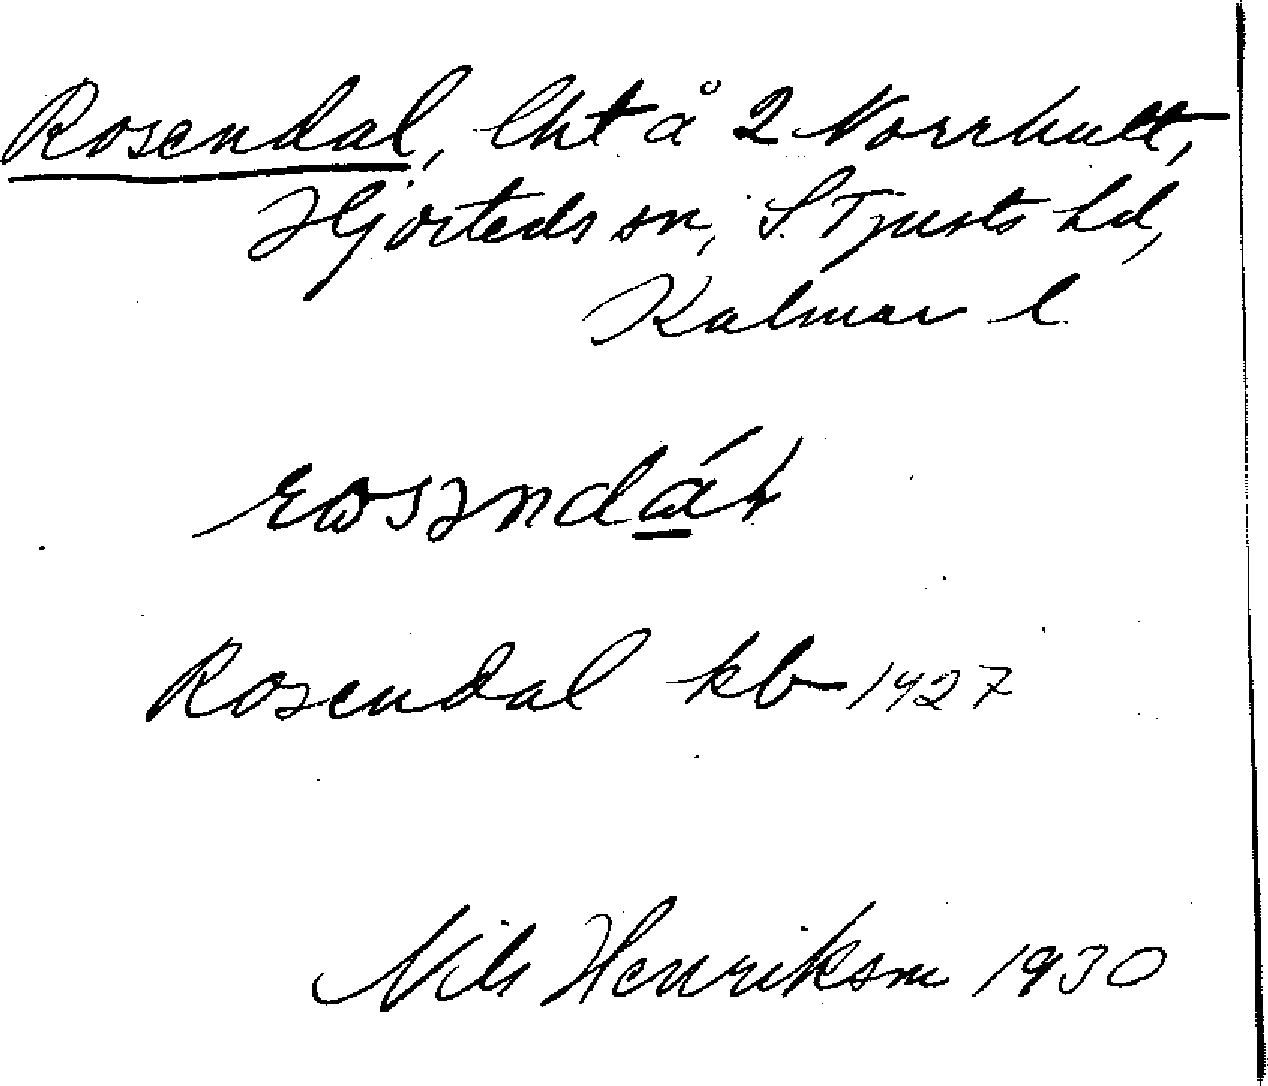 Rosendal, lht å 2 Norrhult,
Hjorteds sn, S. Tjusts hd,
Kalmar l.
Rosendal kb 1927
Nils Henrikson 1930